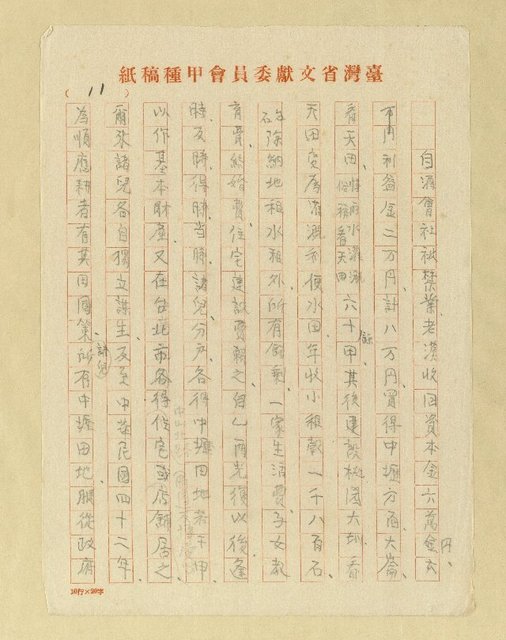 臺灣省文獻委員會甲種稿紙
(11)
自酒會社被禁業老漢收回資本金六萬餘円、
円利益金二万円、計八万円買得中壢方面大崙
看天田、俗稱看天田六十餘甲其後建設桃園大圳、看
天田変為灌溉利便水田、年收小租穀一千八百石、
除納地租水租外、所有餘剩、一家生活費、子女教
育費、結婚費、住宅建設費賴之、自乙酉光復以後、逢
時及時、得勝當時、諸兒分戶、各得中壢田地若干甲
以作基本財產、又在台北市各得住宅或店舖居之、
爾來諸兒各自獨立謀生、及至中華民國四十二年、
為順應耕者有其田國策、諸兒所有中壢田地、服從政府
10行×20字